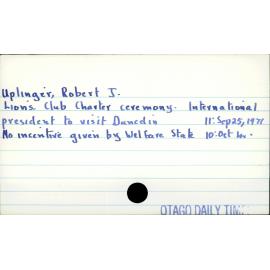 Uplinger, Robert J.
Lions Club Charter ceremony. International
president to visit Dunedin 11: Sep 25, 1971
No incentive given by Welfare State 10: Oct
OTAGO DAILY TIM